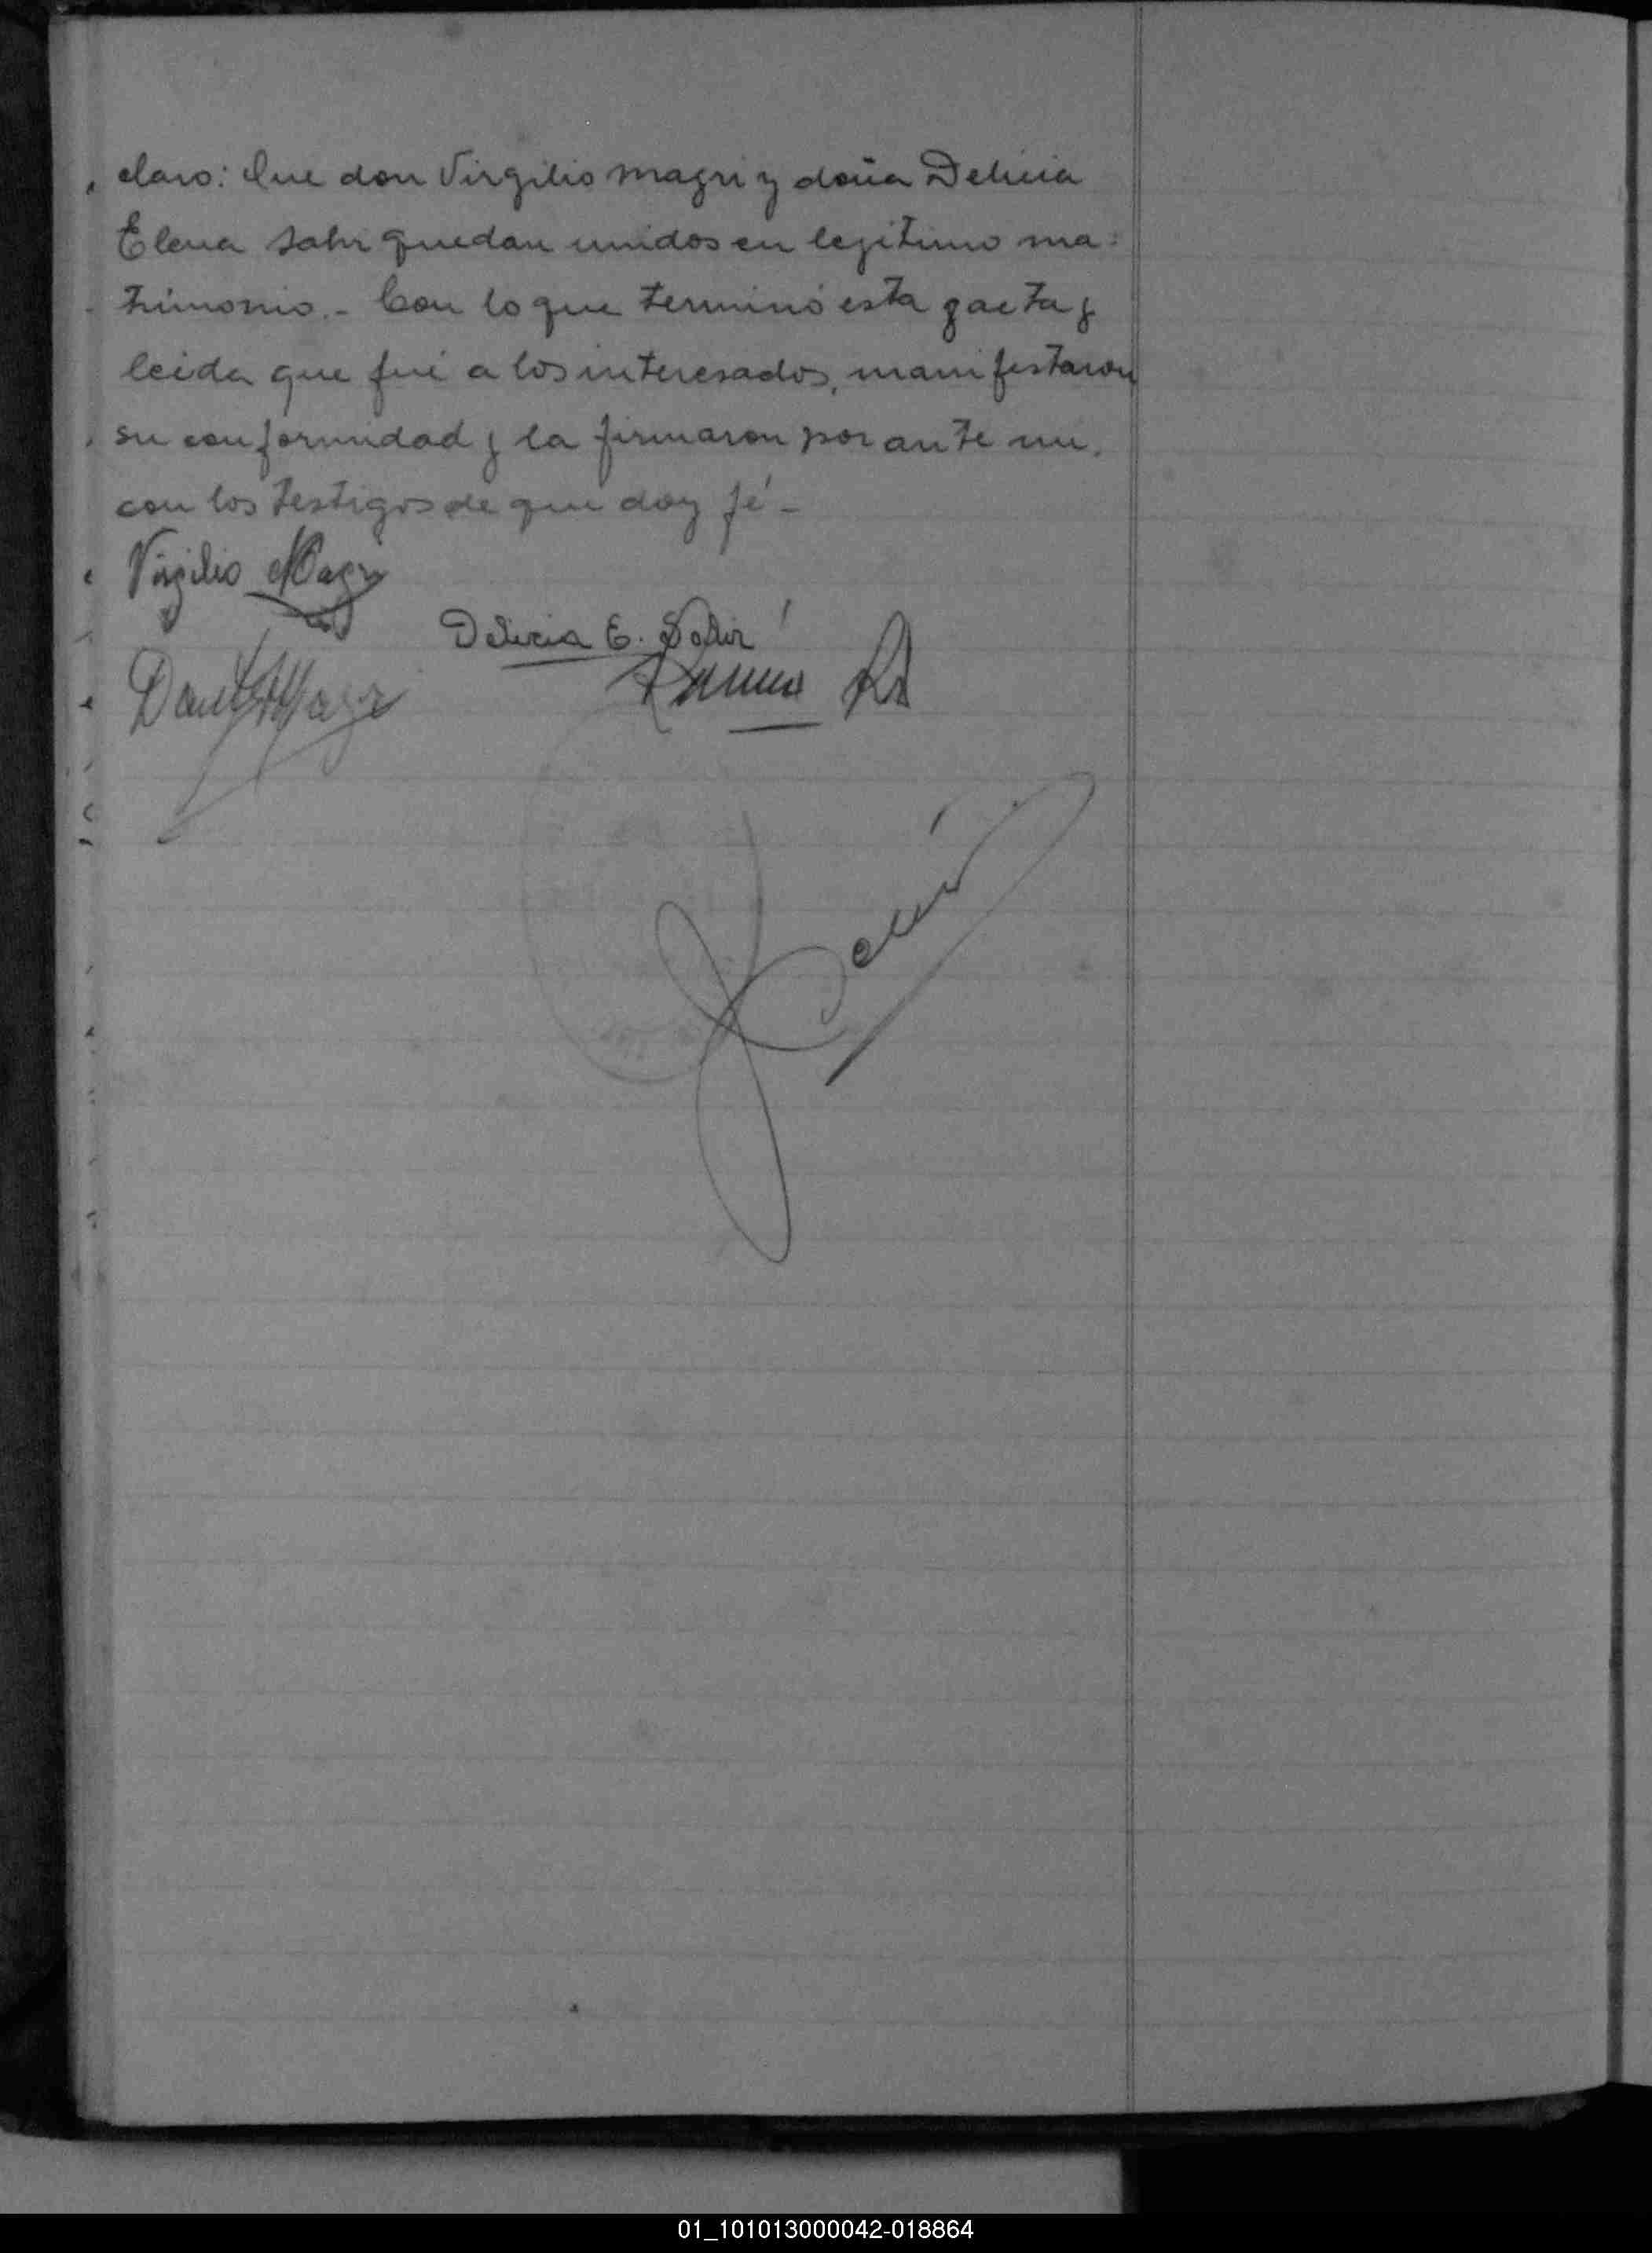 claro: Que don Virgilio Magri y doña Delicia
Elena Sahr quedan unidos en legitimo ma:
trimonio.- Con lo que terminó esta y
leida que fué a los interesados, manifestaron
su conformidad y la firmaron por ante mi.
con los testigos de que doy fé -
Virgilio Magri
Delicia E.
01_101013000042-018864